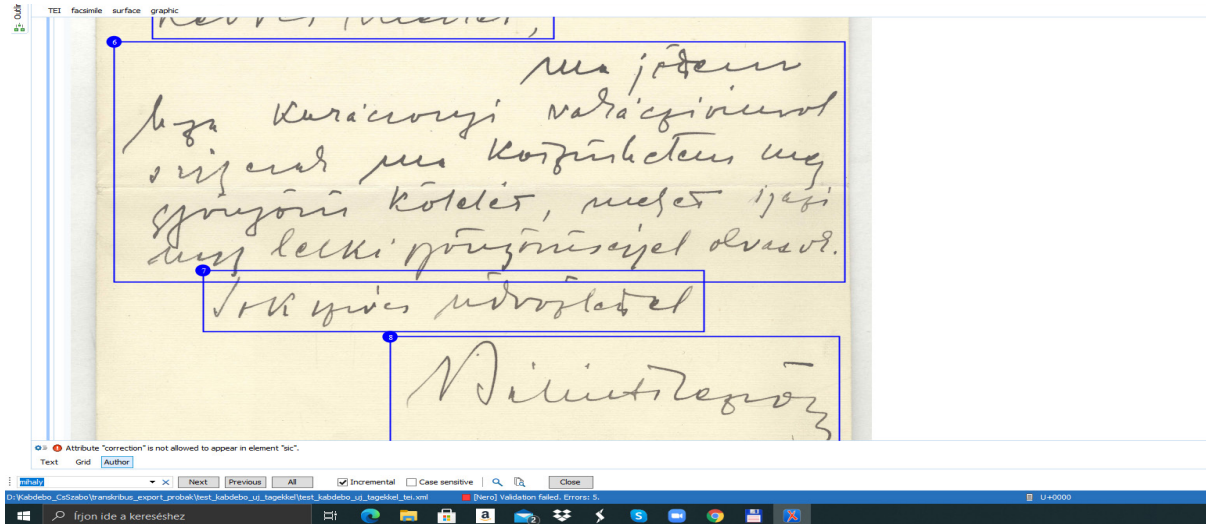 Outlin
TEI facsimile surface graphic
Kedves
6
ma jöttem
haza karácsonyi vakációmról
s így csak ma köszönhetem meg
gyönyörű kötetét, melyet igazi
nagy lelki gyönyörűséggel olvasok.
7
Sok szíves üdvözlettel
8
Attribute "correction" is not allowed to appear in element "sic".
Text Grid Author
mihaly Next Previous All Incremental Case sensitive Close
D:\Kabdebo_CsSzabo\transkribus_export_probak\test_kabdebo_uj_tagekkel\test_kabdebo_uj_tagekkel_tei.xml [Nero] Validation failed. Errors: 5. U+0000
Írjon ide a kereséshez